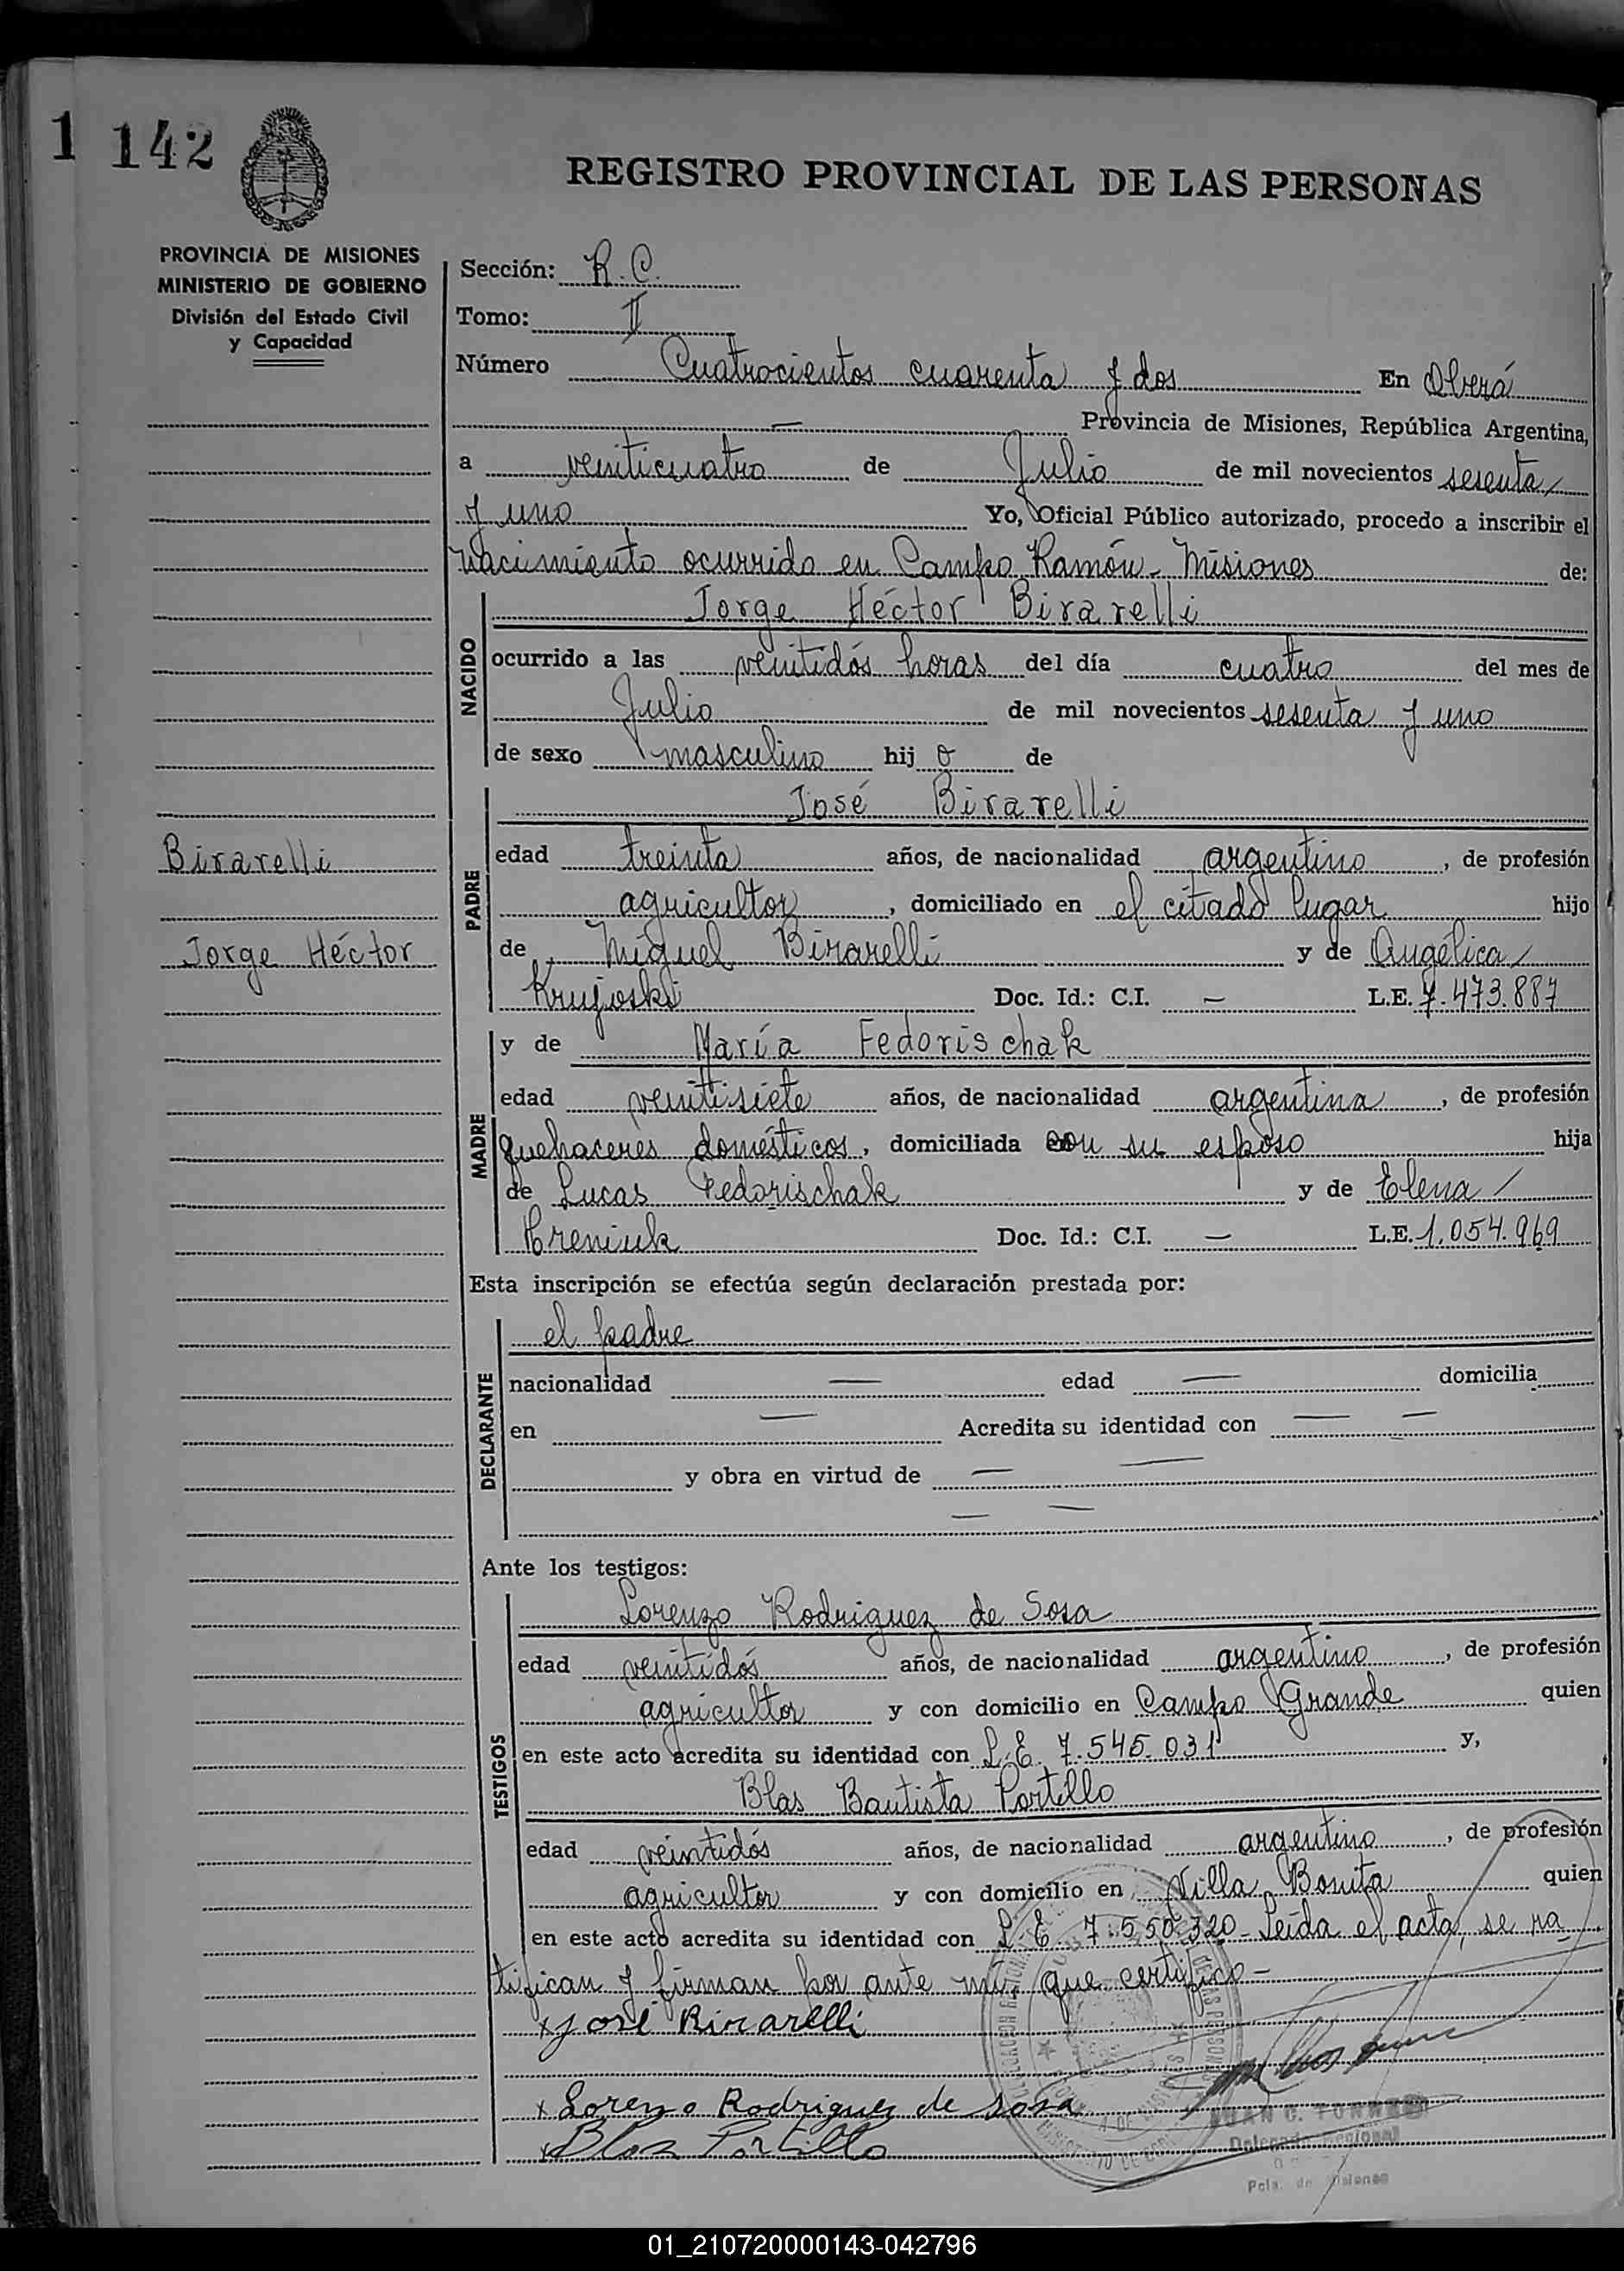 1 142
REGISTRO PROVINCIAL DE LAS PERSONAS
PROVINCIA DE MISIONES
MINISTERIO DE GOBIERNO
División del Estado Civil
y Capacidad
Sección: R. C.
Tomo: II
Número Cuatrocientos cuarenta y dos En Oberá
— Provincia de Misiones, República Argentina,
a veinticuatro de Julio de mil novecientos sesenta
y uno Yo, Oficial Público autorizado, procedo a inscribir el
nacimiento ocurrido en Campo Ramón - Misiones de:
NACIDO
Jorge Héctor Birarelli
ocurrido a las veintidós horas del día cuatro del mes de
Julio de mil novecientos sesenta y uno
de sexo masculino hij o de
PADRE
José Birarelli
Birarelli
edad treinta años, de nacionalidad argentino, de profesión
agricultor, domiciliado en el citado lugar hijo
Jorge Héctor
de Miguel Birarelli y de Angélica
Krujoski Doc. Id.: C.I. — L.E. 7.473.887
MADRE
y de María Fedorischak
edad veintisiete años, de nacionalidad argentina, de profesión
quehaceres domésticos, domiciliada con su esposo hija
de Lucas Fedorischak y de Elena
Hreniuk Doc. Id.: C.I. — L.E. 1.054.969
Esta inscripción se efectúa según declaración prestada por:
DECLARANTE
el padre
nacionalidad — edad — domicilia
en — Acredita su identidad con — —
y obra en virtud de — —
— —
Ante los testigos:
TESTIGOS
Lorenzo Rodriguez de Sosa
edad veintidós años, de nacionalidad argentino, de profesión
agricultor y con domicilio en Campo Grande quien
en este acto acredita su identidad con L.E. 7.545.031 y,
Blas Bautista Portillo
edad veintidós años, de nacionalidad argentino, de profesión
agricultor y con domicilio en Villa Bonita quien
en este acto acredita su identidad con L.E. 7.550.320 - Leída el acta, se ra
tifican y firman por ante mí, que certifico -
x José Birarelli
x Lorenzo Rodriguez de Sosa
x Blas Portillo
JUAN C. TORRES
Delegado Regional
Pcia. de Misiones
01_210720000143-042796